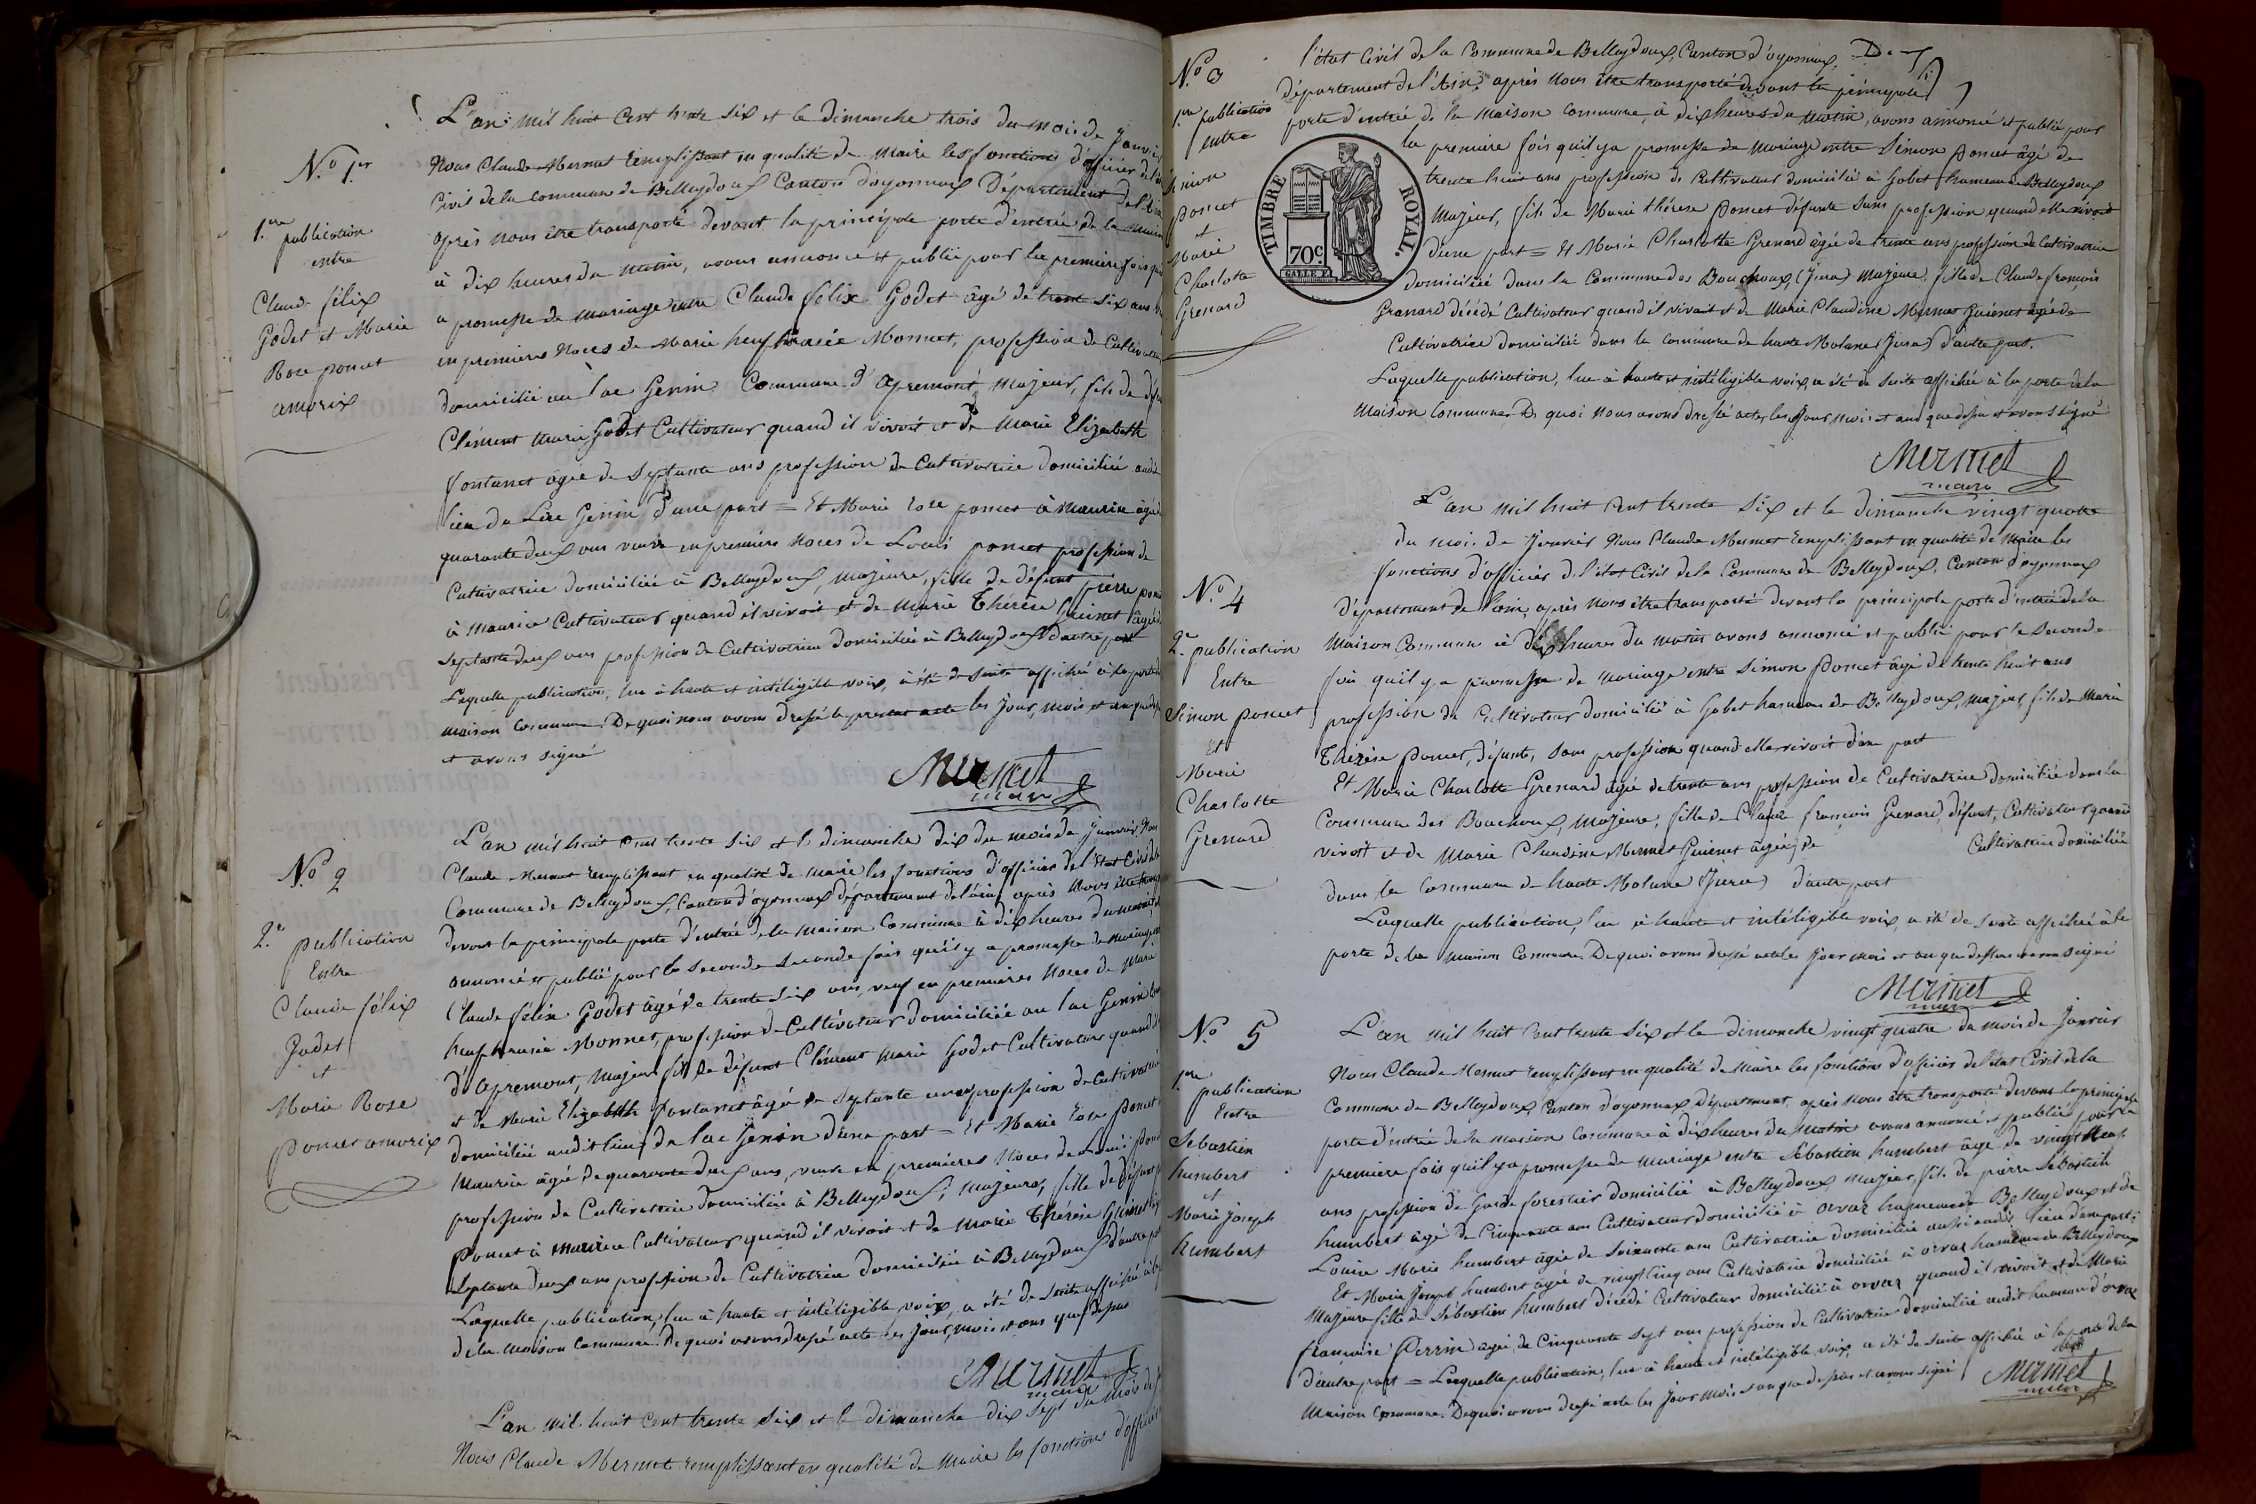 N.o 1.er
1.ere publication
entre
Claude félix
Godet et Marie
Rose poncet
amorix
L'an mil huit Cent trente six et le dimanche trois du mois de Janvier
Nous Claude Mermet remplissant en qualité de Maire les fonctions d'officier de l'état
Civil de la commune de Belleydoux Canton d'oyonnax Département de l'ain
après nous être transporté devant la principale porte d'entrée de la maison
à dix heures du matin, avons annoncé et publié pour la premiere fois qu'il
a promesse de mariage entre Claude félix Godet âgé de trente six ans
en premieres Noces de Marie heuphrasie Monnet, profession de Cultivateur
domicilié au lac Genin Commune d'apremont, majeur, fils de
Clément Marie Godet Cultivateur quand il vivoit et de Marie Elizabeth
fontanet âgée de Septante ans profession de Cultivatrice domiciliée audit
lieu du Lac Genin d'une part = Et Marie rose poncet à maurice âgée
quarante deux ans veuve en premieres Noces de Louis poncet profession de
Cultivatrice domiciliée à Belleydoux, majeure, fille de défunt pierre
à maurice Cultivateur quand il vivoit et de Marie Thérèse Guinet âgée
septante deux ans profession de Cultivatrice domiciliée à Belleydoux d'autre part
Laquelle publication, lue à haute et intéligible voix, a été de suite affichée à la porte
maison Commune. De quoi nous avons dressé le present acte les Jour, mois et an que
et avons signé
Mermet
maire
N.o 2
2.e publication
Entre
Claude félix
Godet
et
Marie Rose
poncet amorix
L'an mil huit Cent trente six et le dimanche dix du mois de Janvier Nous
Claude Mermet remplissant en qualité de Maire les fonctions d'officier de l'état Civil de la
Commune de Belleydoux, Canton d'oyonnax département de l'ain, après Nous être
devant la principale porte d'entrée de la maison Commune à dix heures du
annoncé et publié pour la seconde seconde fois qu'il y a promesse de mariage
Claude félix Godet âgé de trente six ans, veuf en premieres Noces de Marie
heuphrasie Monnet, profession de Cultivateur domicilié au lac Genin
d'apremont, Majeur fils de défunt Clément Marie Godet Cultivateur quand
et de Marie Elizabeth fontanet âgée de Septante ans profession de Cultivatrice
domiciliée audit lieu de lac Genin d'une part = Et Marie rose poncet
Maurice âgée de quarante deux ans, veuve en premieres Noces de Louis
profession de Cultivatrice domiciliée à Belleydoux, majeure, fille de défunt
poncet à maurice Cultivateur quand il vivoit et de Marie Thérèse Guinet
septante deux ans profession de Cultivatrice domiciliée à Belleydoux d'autre
Laquelle publication, lue à haute et intéligible voix, a été de suite affichée à
de la maison Commune. De quoi avons dressé acte les Jour, mois et ans que dessus
Mermet
maire
L'an mil huit Cent trente six et le dimanche dix sept du mois de
Nous Claude Mermet remplissant en qualité de Maire les fonctions d'officier
N.o 3
1.ere publication
entre
Simon
poncet
et
Marie
Charlotte
Grenard
l'état Civil de la Commune de Belleydoux, Canton d'oyonnax, De
département de l'Ain, après Nous être transporté devant la principale
porte d'entrée de la maison Commune, à dix heures du matin, avons annoncé et publié pour
la premiere fois qu'il y a promesse de mariage entre Simon poncet âgé de
trente huit ans profession de Cultivateur domicilié à Gobet hameau de Belleydoux
Majeur, fils de Marie thérese poncet défunte sans profession quand elle vivoit
d'une part = Et Marie Charlotte Grenard âgée de trente ans profession de Cultivatrice
domiciliée dans la Commune des Bouchoux, (Jura) majeure, fille de Claude françois
Grenard décédé Cultivateur quand il vivait et de Marie Claudine Mermet Guienet âgée de
Cultivatrice domiciliée dans la commune de haute Molune (Jura) d'autre part.
Laquelle publication, lue à haute et intéligible voix, a été de suite affichée à la porte de la
Maison Commune, De quoi nous avons dressé acte, les Jour, mois et ans que dessus et avons signé
TIMBRE ROYAL.
70c.
Mermet
maire
N.o 4
2.e publication
Entre
Simon poncet
Et
Marie
Charlotte
Grenard
L'an mil huit Cent trente six et le dimanche vingt quatre
du mois de Janvier Nous Claude Mermet remplissant en qualité de Maire les
fonctions d'officier de l'état Civil de la Commune de Belleydoux, Canton d'oyonnax
Département de l'ain, après Nous être transporté devant la principale porte d'entrée de la
Maison Commune à dix heures du matin avons annoncé et publié pour la seconde
fois qu'il y a promesse de mariage entre Simon poncet âgé de trente huit ans
profession de Cultivateur domicilié à Gobet hameau de Belleydoux, majeur, fils de Marie
Thérèse poncet, défunte, sans profession quand elle vivoit d'une part
Et Marie Charlotte Grenard âgée de trente ans profession de Cultivatrice domiciliée dans la
Commune des Bouchoux, majeure, fille de Claude françois Grenard, défunt, Cultivateur quand
vivoit et de Marie Claudine Mermet Guienet âgée de Cultivatrice domiciliée
dans la Commune de haute Molune (Jura) d'autre part
Laquelle publication, lue à haute et intéligible voix, a été de suite affichée à la
porte de la maison Commune. De quoi avons dressé acte les Jour mois et an que dessus avons signé
Mermet
maire
N.o 5
1.ere
publication
Entre
Sébastien
humbert
et
Marie Joseph
humbert
L'an mil huit Cent trente six et le dimanche vingt quatre du mois de Janvier
Nous Claude Mermet remplissant en qualité de Maire les fonctions d'officier de l'état Civil de la
Commune de Belleydoux, Canton d'oyonnax Département, après nous être transporté devant la principale
porte d'entrée de la maison Commune à dix heures du matin avons annoncé et publié pour la
premiere fois qu'il y a promesse de mariage entre Sébastien humbert âgé de vingt neuf
ans profession de Garde forestier domicilié à Belleydoux, majeur fils de pierre Sébastien
humbert âgé de Cinquante ans Cultivateur domicilié à orvaz hameau de Belleydoux et de
Louise Marie humbert âgée de Soixante ans Cultivatrice domiciliée aussi audit lieu d'une part;
Et Marie Joseph humbert âgée de vingt cinq ans Cultivatrice domiciliée à orvaz hameau de Belleydoux
Majeure fille de Sébastien humbert décédé Cultivateur domicilié à orvaz quand il vivoit et de Marie
françoise Perrin âgée de Cinquante sept ans profession de Cultivatrice domiciliée audit hameau d'orvaz
d'autre part = Laquelle publication, lue à haute et intéligible voix, a été de suite affichée à la porte de la
Maison Commune. De quoi avons dressé acte les Jour mois et an que dessus et avons signé
Mermet
maire